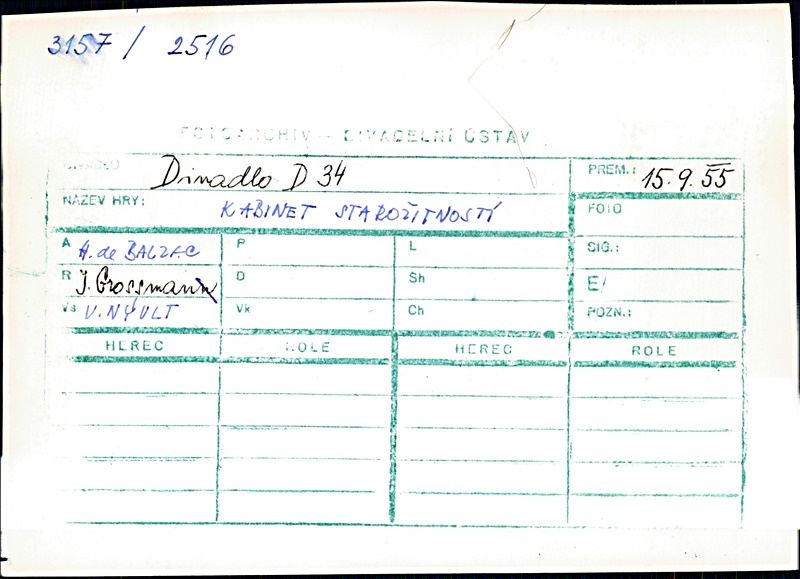 3157 / 2516
FOTOARCHIV – DIVADELNÍ ÚSTAV
DIVADLO Divadlo D 34 PREM.: 15.9.55
NÁZEV HRY: KABINET STAROŽITNOSTÍ FOTO
A H. de BALZAC P L SIG.:
R J. Grossmann D Sh E/
Vs V. NÝVLT Vk Ch POZN.:
HEREC ROLE HEREC ROLE